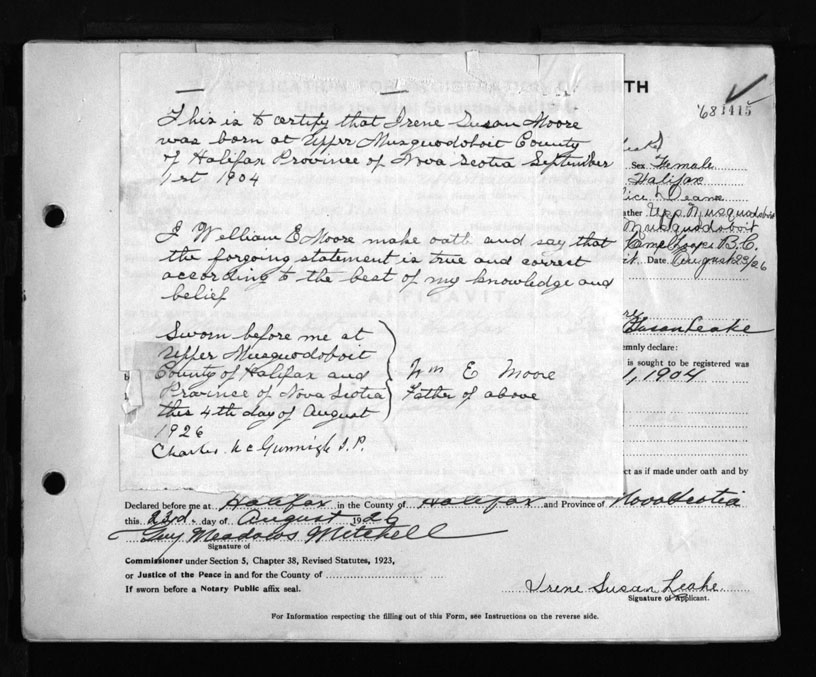 APPLICATION FOR REGISTRATION OF BIRTH
'68 1415
This is to certify that Irene Susan Moore
was born at Upper Musquodoboit County
of Halifax Province of Nova Scotia September
1st 1904
I William E Moore make oath and say that
the forgoing statement is true and correct
according to the best of my knowledge and
belief
AFFIDAVIT
Sworn before me at
Upper Musquodoboit
County of Halifax and
Province of Nova Scotia
this 4th day of August
1926
Charles Mc Gunnigle J.P.
Wm E Moore
Father of above
Sex Female
Halifax
Deane
ather Upp. Musquodoboit
Musquodoboit
B.C.
Date August 23/26
Susan Leake
emnly declare:
is sought to be registered was
1, 1904
ct as if made under oath and by
Declared before me at Halifax in the County of Halifax and Province of Nova Scotia
this 23rd day of August 1926
Guy Meadows Mitchell
Signature of
Commissioner under Section 5, Chapter 38, Revised Statutes, 1923,
or Justice of the Peace in and for the County of
If sworn before a Notary Public affix seal.
Irene Susan Leake
Signature of Applicant.
For Information respecting the filling out of this Form, see Instructions on the reverse side.